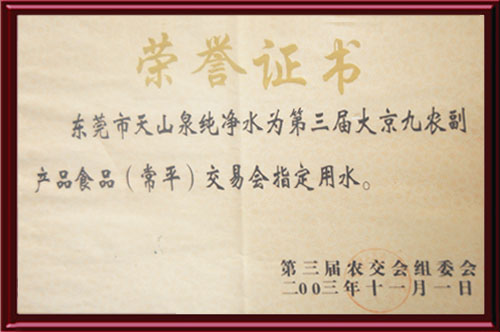 荣誉证书
东莞市天山泉纯净水为第三届大京九农副
产品食品（常平）交易会指定用水。
第三届农交会组委会
二00三年十一月一日